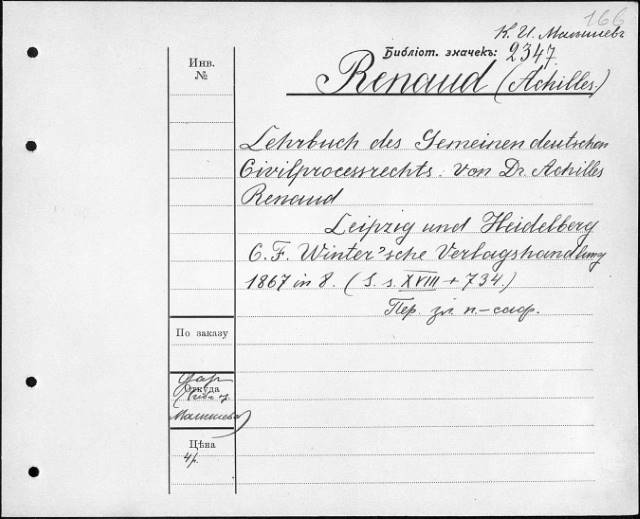 166
К. И. Малышевъ
Библіот. значекъ: 2347.
Инв.
№
Renaud (Achilles)
Lehrbuch des Gemeinen deutschen
Civilprocessrechts. Von Dr. Achilles
Renaud
Leipzig und Heidelberg
C. F. Winter'sche Verlagshandlung
1867 in 8. (S. s. XVIII + 734.)
Пер.
По заказу
Дар
Откуда
Малышева)
Цѣна
4 р.